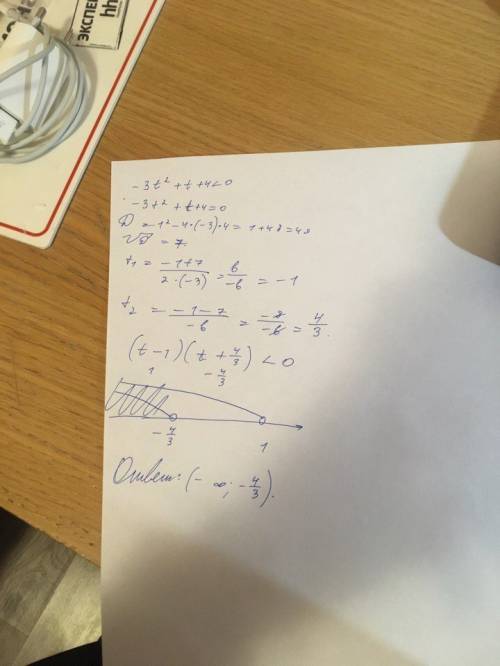 ЭКСПЕ
hh
-3t² + t + 4 < 0
-3t² + t + 4 = 0
D = 1² - 4·(-3)·4 = 1 + 48 = 49
√D = 7
t₁ = (-1+7)/(2·(-3)) = 6/-6 = -1
t₂ = (-1-7)/-6 = -8/-6 = 4/3.
(t - 1)(t + 4/3) < 0
1 -4/3
-4/3 1
Ответ: (-∞; -4/3).